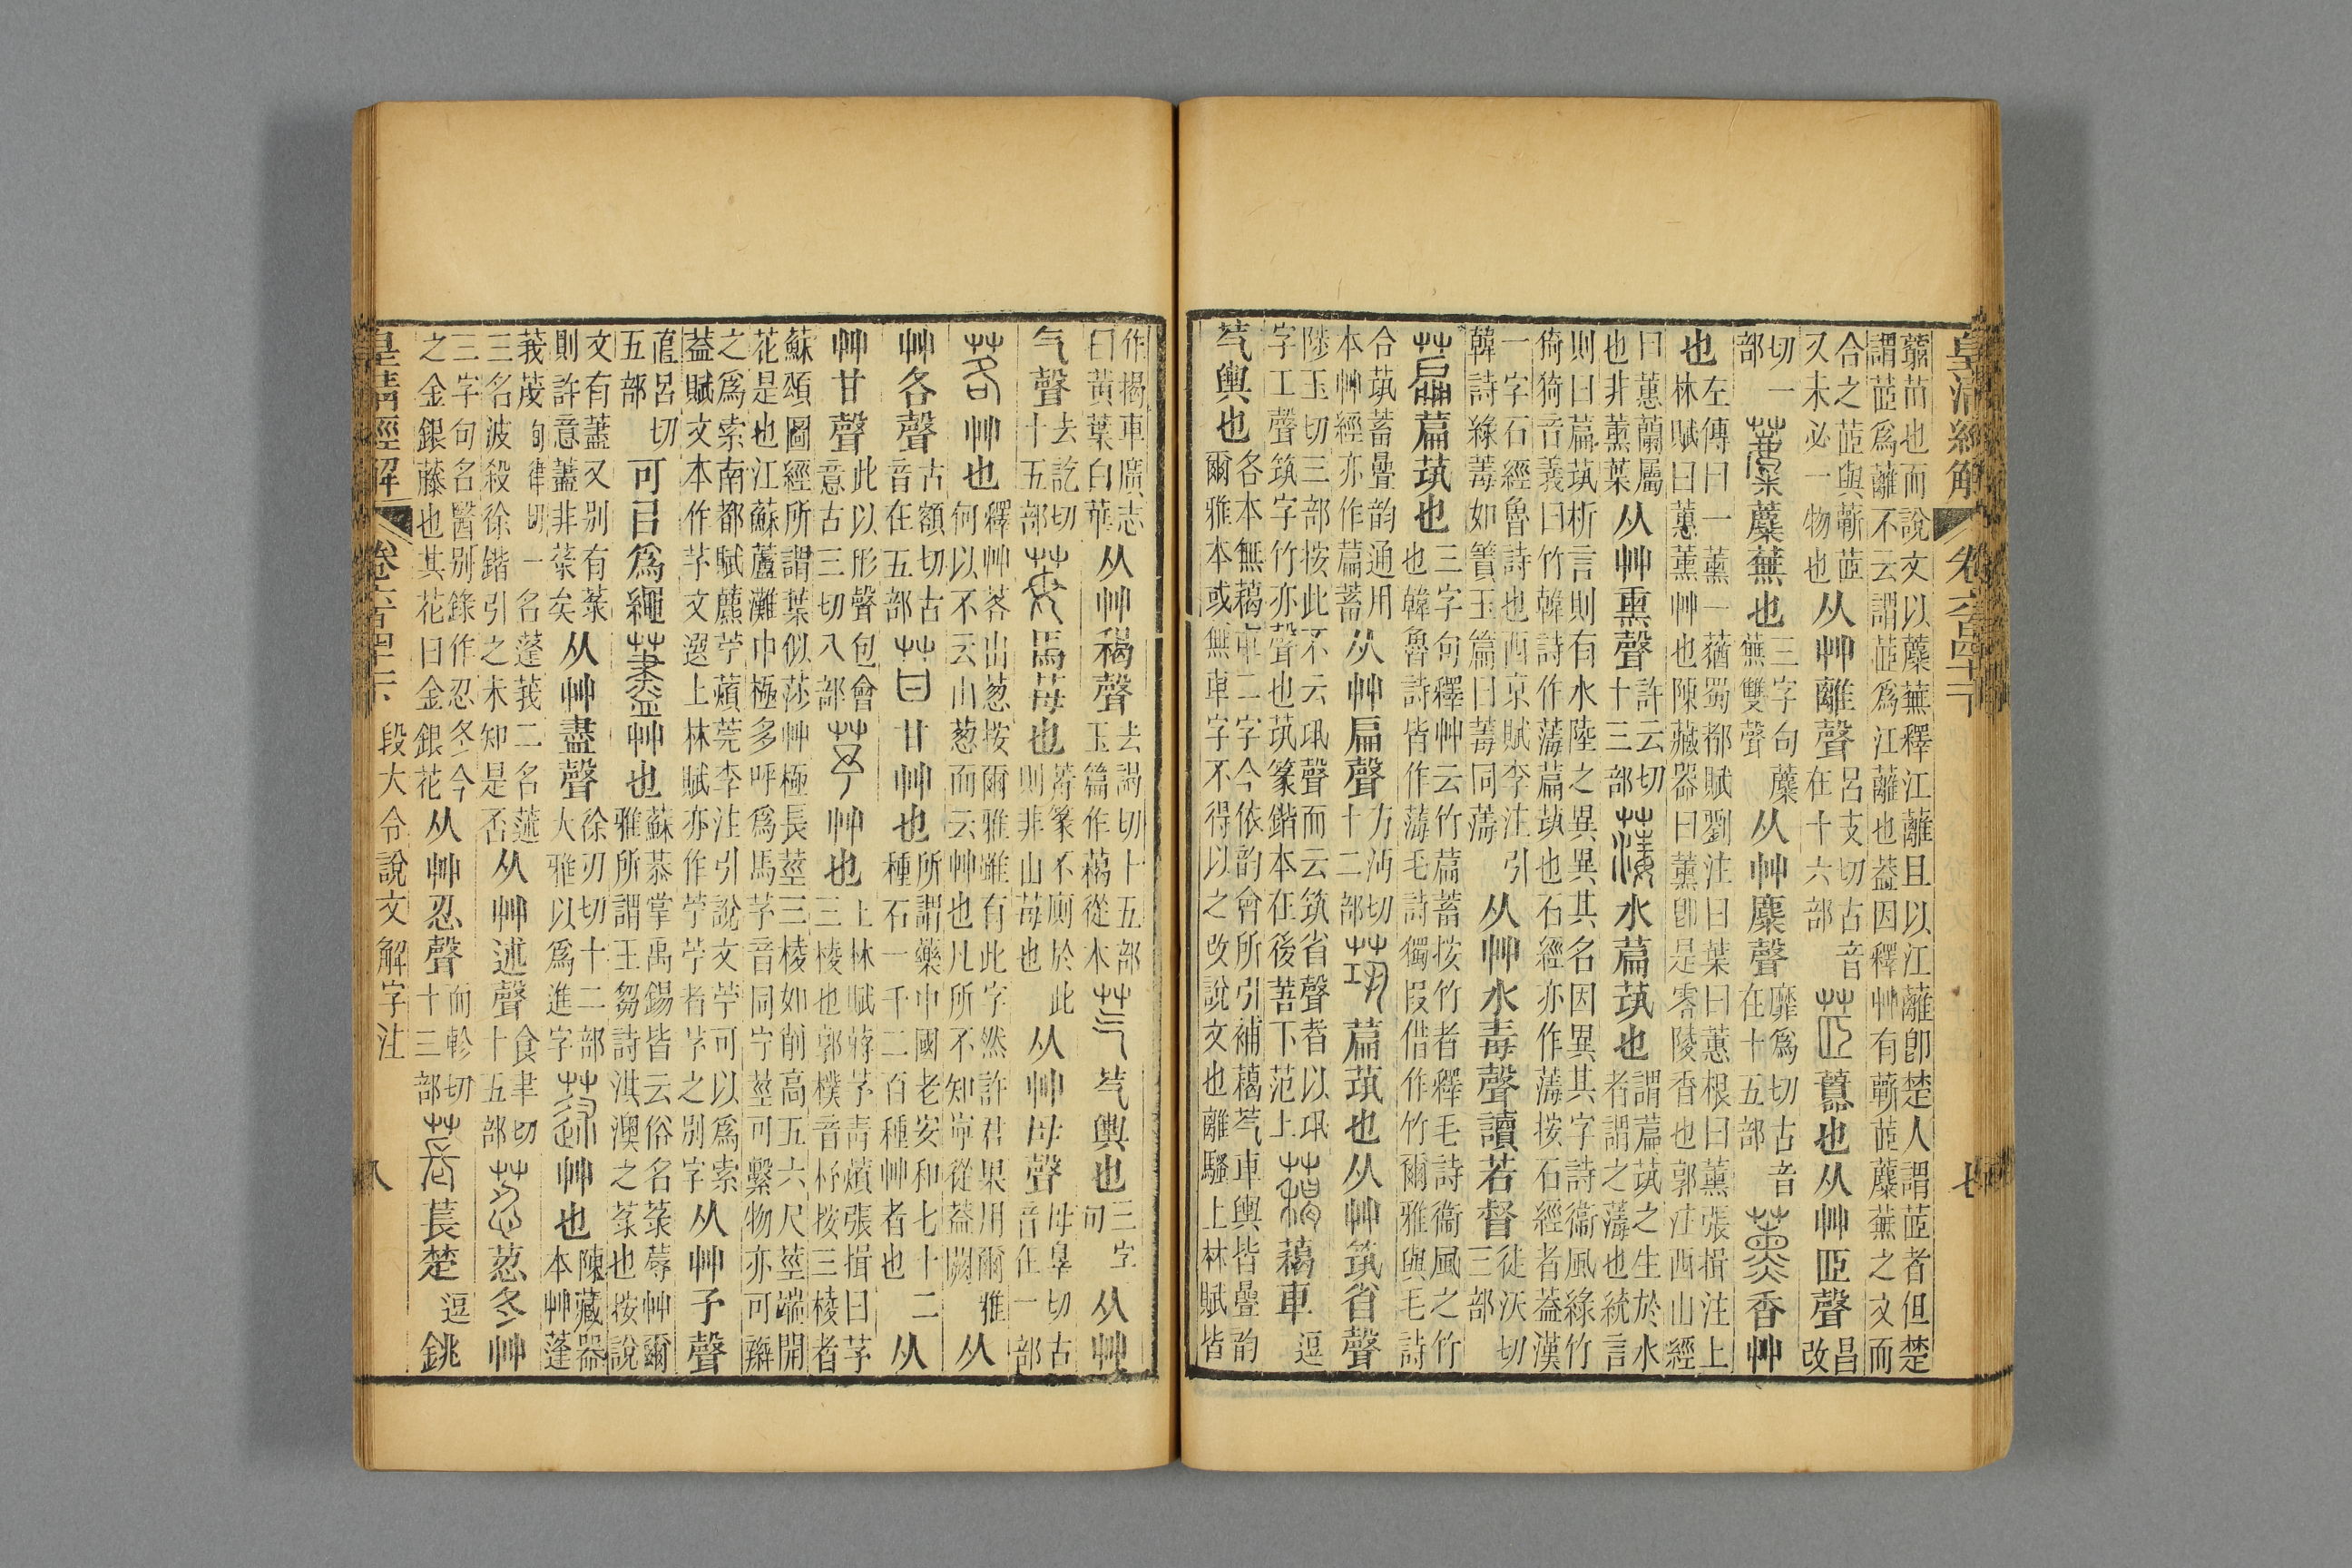 皇清經解 卷六百四十一下 七
蘪苗也而說文以蘪蕪釋江蘺且以江蘺卽楚人謂茝者但楚
謂茝爲蘺不云謂茝爲江蘺也葢因釋艸有蘄茝蘪蕪之文而
合之茝與蘄茝又未必一物也从艸離聲呂支切古音在十六部茝虈也从艸𦣞聲昌改
切一部蘪蘪蕪也三字句蘪蕪雙聲从艸麋聲靡爲切古音在十五部薰香艸
也左傳曰一薰一蕕蜀都賦劉注曰葉曰蕙根曰薰張揖注上林賦曰蕙薰艸也陳藏器曰薰卽是零陵香也郭注西山經
曰蕙蘭屬也非薰葉从艸熏聲許云切十三部薄水萹茿也謂萹茿之生於水者謂之薄也統言
則曰萹茿析言則有水陸之異異其名因異其字詩衞風綠竹猗猗音義曰竹韓詩作薄萹茿也石經亦作薄按石經者葢漢
一字石經魯詩也西京賦李注引韓詩綠𦽅如簀玉篇曰𦽅同薄从艸水毒聲讀若督徒沃切三部
萹萹茿也三字句釋艸云竹萹蓄按竹者釋毛詩衞風之竹也韓魯詩皆作薄毛詩獨叚借作竹爾雅與毛詩
合茿蓄曡韵通用本艸經亦作萹蓄从艸扁聲方沔切十二部茿萹茿也从艸筑省聲
陟玉切三部按此不云巩聲而云筑省聲者以巩字工聲筑字竹亦聲也茿篆鍇本在後菩下范上藒藒車逗
芞輿也各本無藒車二字今依韵會所引補藒芞車輿皆曡韵爾雅本或無車字不得以之改說文也離騷上林賦皆
作揭車廣志曰黃葉白華从艸稭聲去謁切十五部玉篇作藒從木芞芞輿也三字句从艸
气聲去訖切十五部苺馬苺也莓篆不廁於此則非山苺也从艸母聲母辠切古音在一部
茖艸也釋艸茖山葱按爾雅雖有此字然許君果用爾雅何以不云山葱而云艸也凡所不知寧從葢闕从
艸各聲古額切古音在五部苷甘艸也所謂藥中國老安和七十二種石一千二百種艸者也从
艸甘聲此以形聲包會意古三切八部芧艸也上林賦蔣芧青薠張揖曰芧三棱也郭樸音杼按三棱者
蘇頌圖經所謂葉似莎艸極長莖三棱如削高五六尺莖端開花是也江蘇蘆灘中極多呼爲馬芧音同宁莖可繫物亦可辮
之爲索南都賦藨苧薠莞李注引說文苧可以爲索葢賦文本作芧文選上林賦亦作苧苧者芧之別字从艸予聲
直呂切五部可㠯爲繩藎艸也蘇恭掌禹錫皆云俗名菉蓐艸爾雅所謂王芻詩淇澳之菉也按說
文有藎又別有菉則許意藎非菉矣从艸盡聲徐刃切十二部大雅以爲進字蒁艸也陳藏器本艸蓬
莪茂旬律切一名蓬莪二名蒁三名波殺徐鍇引之未知是否从艸述聲食聿切十五部荵荵冬艸
三字句名醫別錄作忍冬今之金銀藤也其花曰金銀花从艸忍聲而軫切十三部萇萇楚逗銚
皇清經解 卷六百四十一下 段大令說文解字注 八